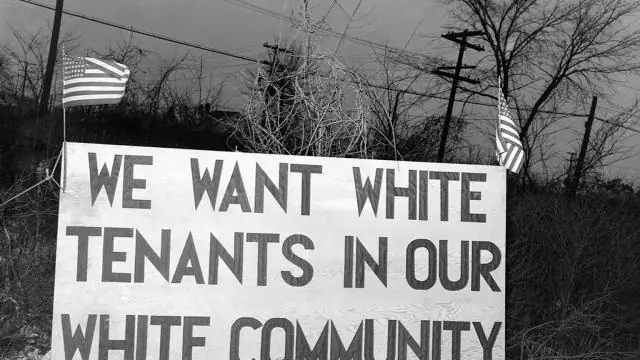 WE WANT WHITE
TENANTS IN OUR
WHITE COMMUNITY